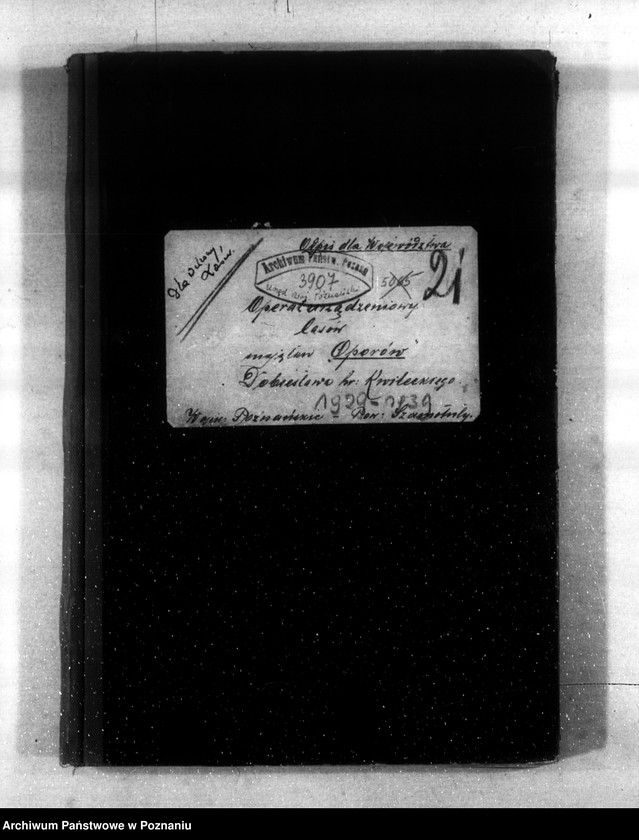 Odpis dla Województwa
Archiwum Państw. Poznań
3907
Urząd Woj. Poznański
5065
21
Operat urządzeniowy
lasów
majętn. Oporów
Dobiesława hr. Kwileckiego
1929-1939
Wojew. Poznańskie - Pow. Szamotuły.
Archiwum Państwowe w Poznaniu